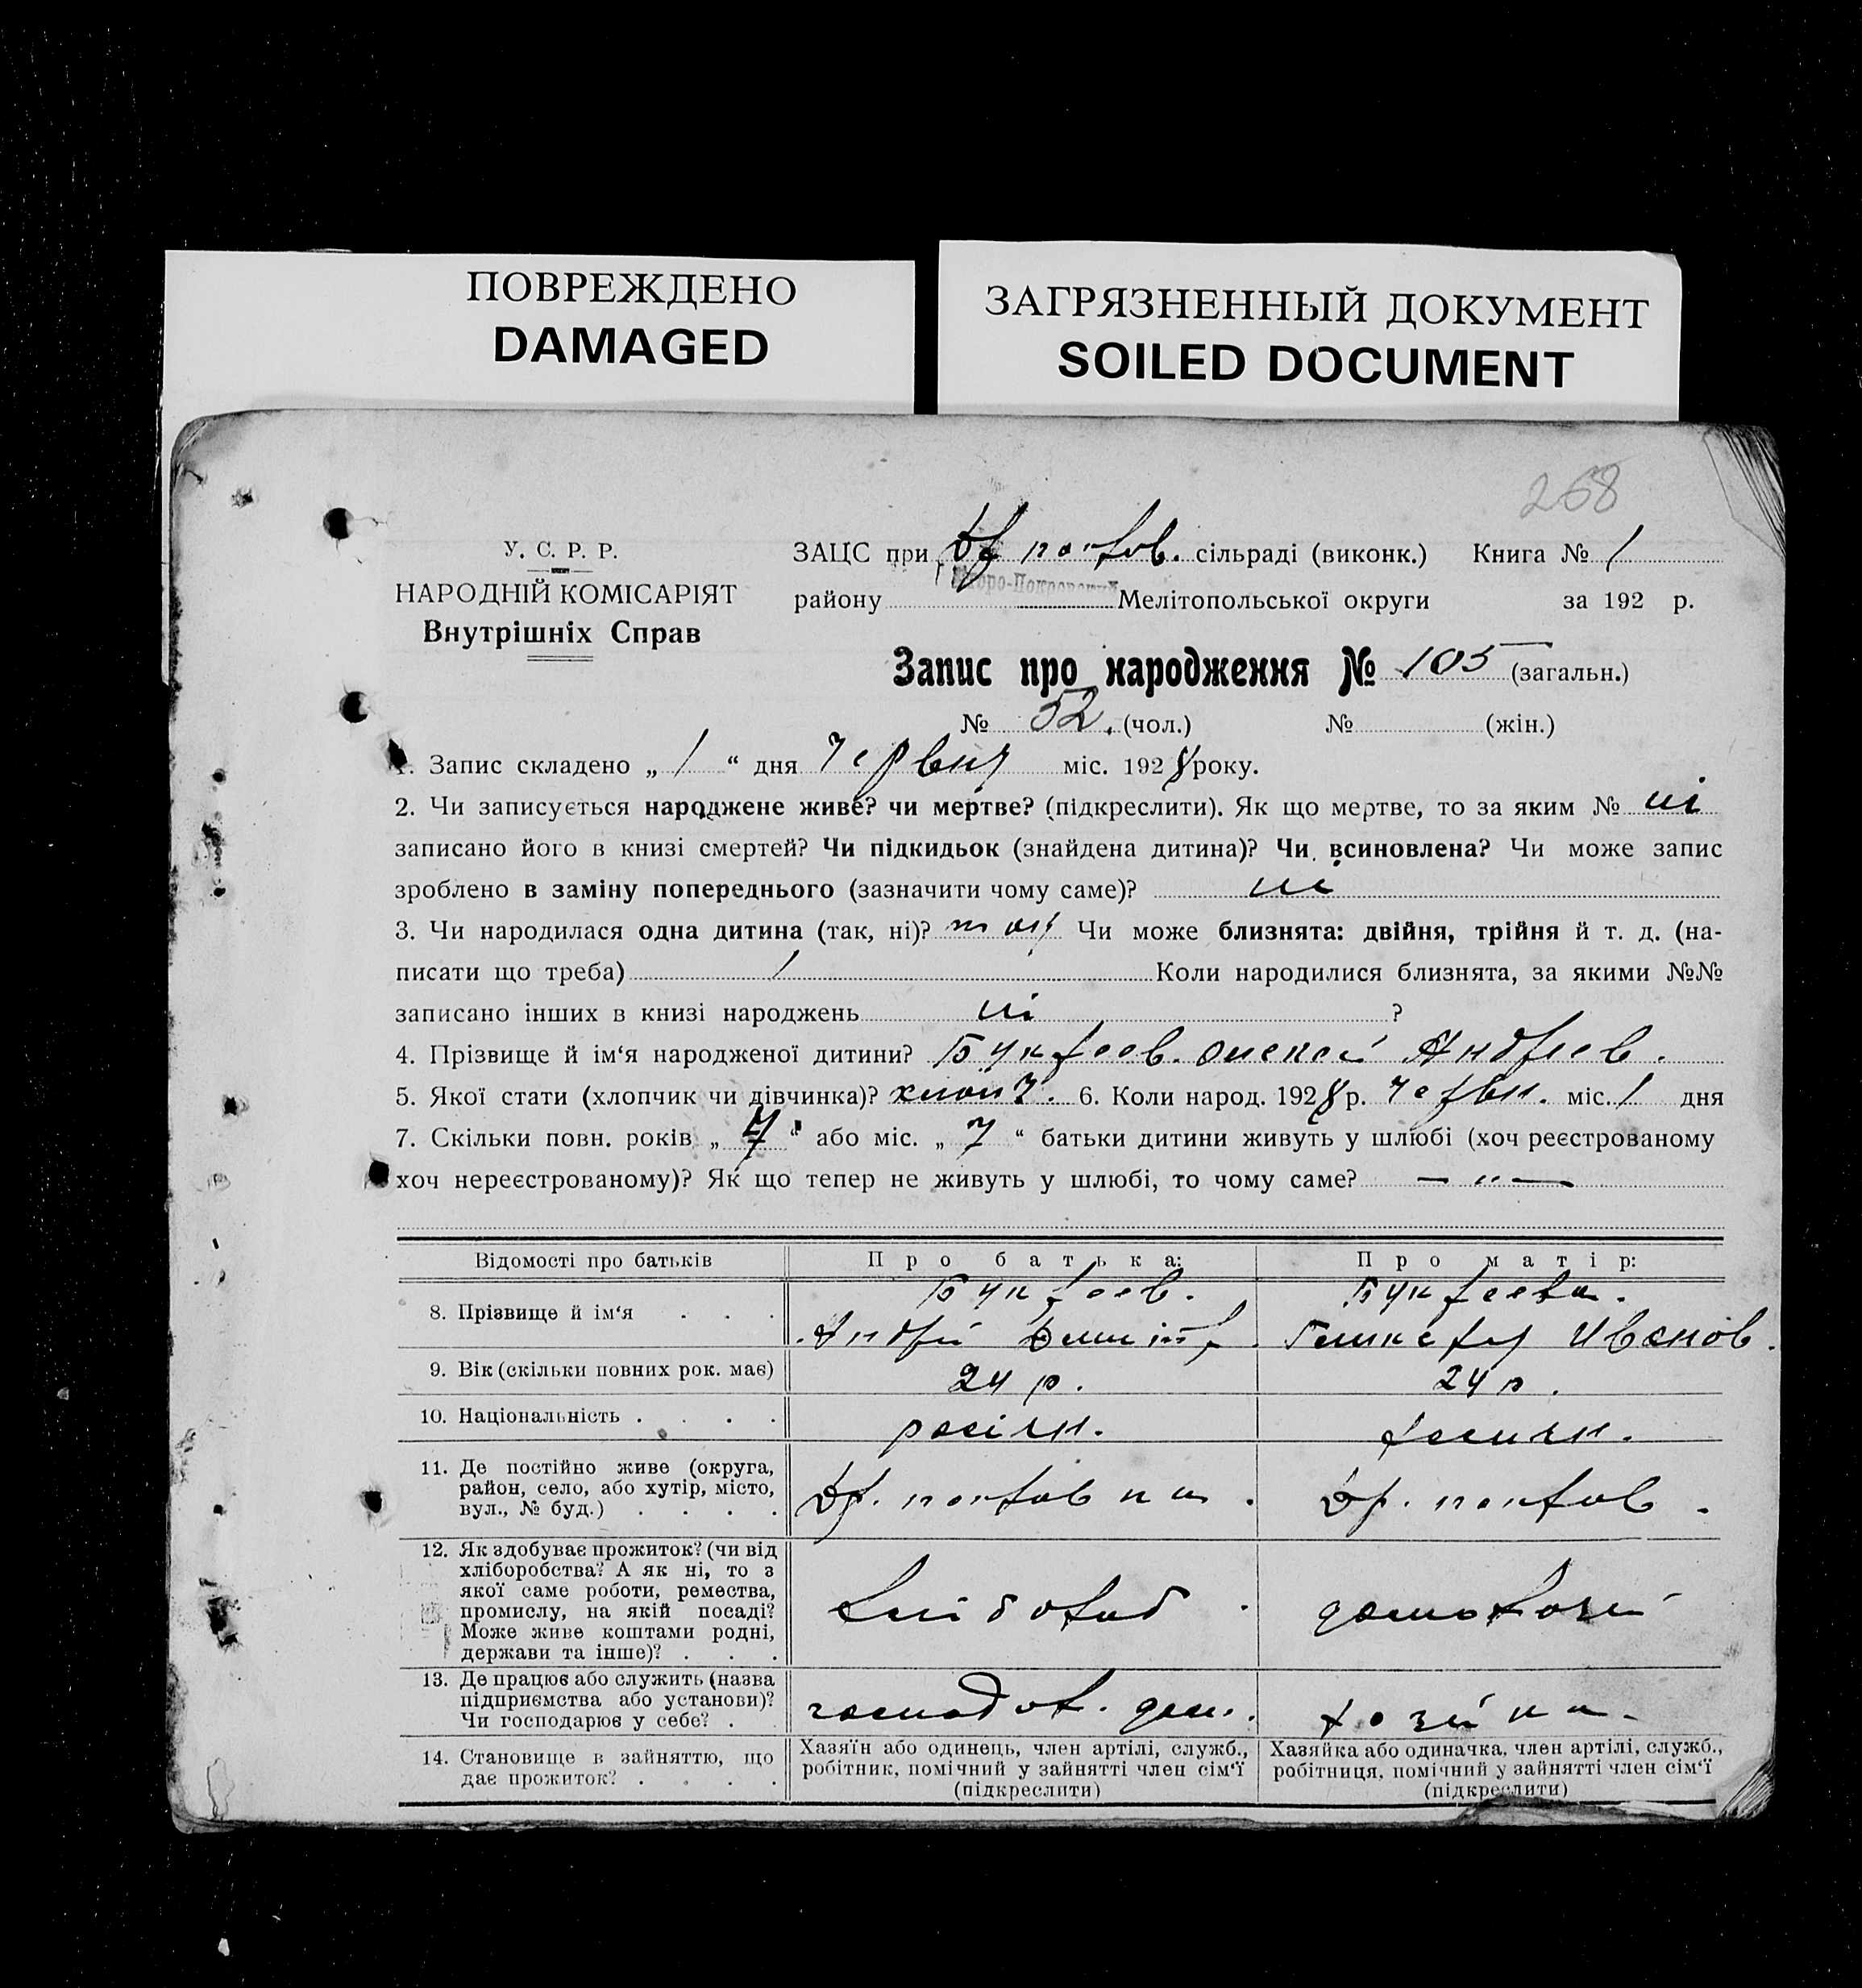 ПОВРЕЖДЕНО
DAMAGED
ЗАГРЯЗНЕННЫЙ ДОКУМЕНТ
SOILED DOCUMENT
268
У. С. Р. Р.
НАРОДНІЙ КОМІСАРІЯТ
Внутрішніх Справ
ЗАЦС при сільраді (виконк.) Книга № 1
району Мелітопольської округи за 192 р.
Запис про народження № 105 (загальн.)
№ 52. (чол.) № (жін.)
1. Запис складено „ 1 “ дня червня міс. 1928 року.
2. Чи записується народжене живе? чи мертве? (підкреслити). Як що мертве, то за яким № ні
записано його в книзі смертей? Чи підкидьок (знайдена дитина)? Чи всиновлена? Чи може запис
зроблено в заміну попереднього (зазначити чому саме)? ні
3. Чи народилася одна дитина (так, ні)? Чи може близнята: двійня, трійня й т. д. (на-
писати що треба) 1 Коли народилися близнята, за якими №№
записано інших в книзі народжень ні ?
4. Прізвище й ім‘я народженої дитини? Букреев. Олексей Андреев.
5. Якої стати (хлопчик чи дівчинка)? хлопч. 6. Коли народ. 1928 р. червн. міс. 1 дня
7. Скільки повн. років „ “ або міс. „ 7 “ батьки дитини живуть у шлюбі (хоч реєстрованому
хоч нереєстрованому)? Як що тепер не живуть у шлюбі, то чому саме? — „ —
Відомості про батьків Про батька: Про матір:
8. Прізвище й ім‘я . . . Букреев. Букреева.
Андрій Дмитр. Иванов.
9. Вік (скільки повних рок. має) 24 р. 24 р.
10. Національність . . . . росіян. росиян.
11. Де постійно живе (округа,
район, село, або хутір, місто,
вул., № буд.) . . . .
12. Як здобуває прожиток? (чи від
хліборобства? А як ні, то з
якої саме роботи, ремества,
промислу, на якій посаді?
Може живе коштами родні,
держави та інше)? . . .
хлібороб домохозяй
13. Де працює або служить (назва
підприємства або установи)?
Чи господарює у себе? .
господар. дом. хозяйка.
14. Становище в зайняттю, що
дає прожиток? . . . .
Хазяїн або одинець, член артілі, служб.,
робітник, помічний у зайнятті член сім‘ї
(підкреслити)
Хазяйка або одиначка, член артілі, служб.,
робітниця, помічний у зайнятті член сім‘ї
(підкреслити)